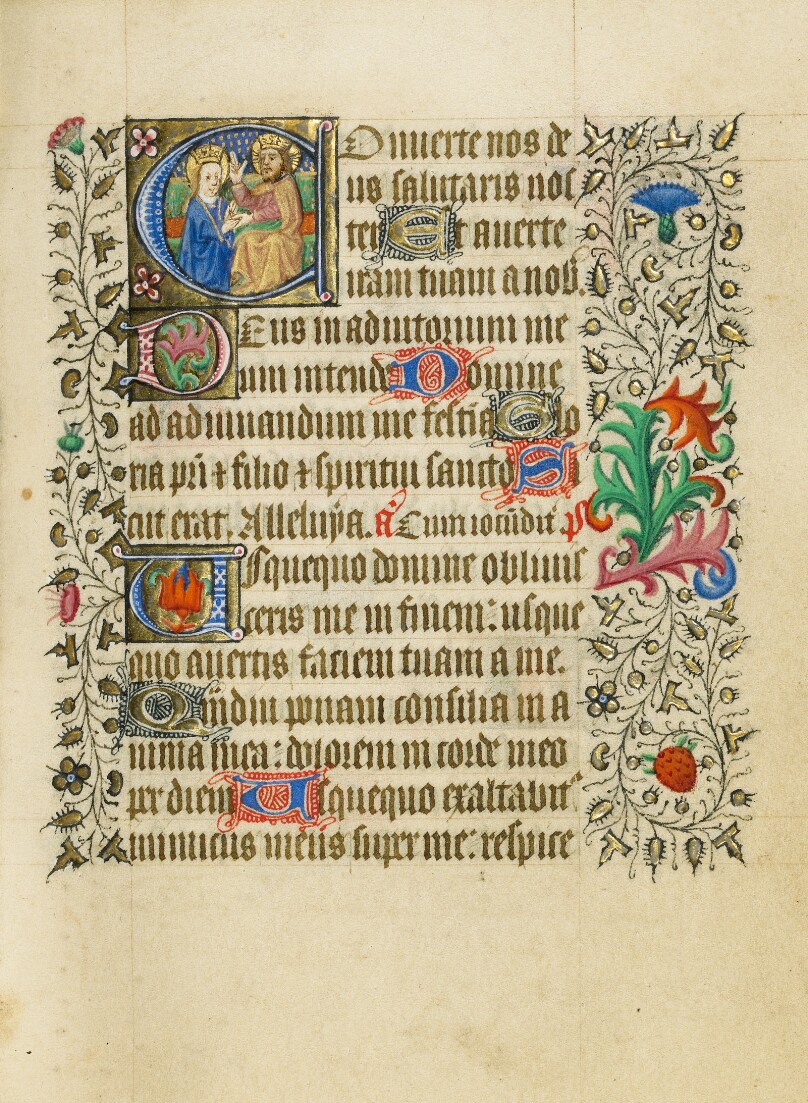 Conuerte nos de
us salutaris nos
ter Et auerte
iram tuam a nob.
Deus in adiutorium me
um intende Domine
ad adiuuandum me festina Glo
ria pri & filio & spiritui sancto Si
cut erat. Alleluya. a Cum iocūdit p
Usquequo domine obliuis
ceris me in finem: usque
quo auertis faciem tuam a me.
Quandiu ponam consilia in a
nima mea: dolorem in corde meo
per diem Usquequo exaltabit
inimicus meus super me: respice